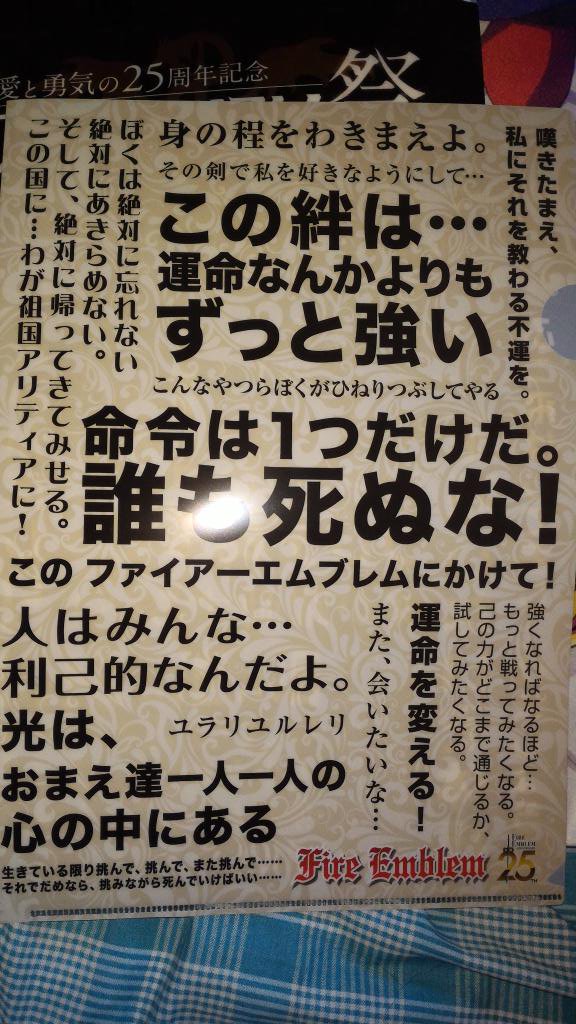 愛と勇気の25周年記念
祭
嘆きたまえ、
私にそれを教わる不運を。
身の程をわきまえよ。
その剣で私を好きなようにして…
この絆は…
運命なんかよりも
ずっと強い
ぼくは絶対に忘れない
絶対にあきらめない。
そして、絶対に帰ってきてみせる。
この国に…わが祖国アリティアに！
こんなやつらぼくがひねりつぶしてやる
命令は1つだけだ。
誰も死ぬな！
このファイアーエムブレムにかけて！
強くなればなるほど…
もっと戦ってみたくなる。
己の力がどこまで通じるか、
試してみたくなる。
運命を変える！
また、会いたいな…
人はみんな…
利己的なんだよ。
ユラリユルレリ
光は、
おまえ達一人一人の
心の中にある
生きている限り挑んで、挑んで、また挑んで……
それでだめなら、挑みながら死んでいけばいい……
Fire Emblem
FIRE EMBLEM
25